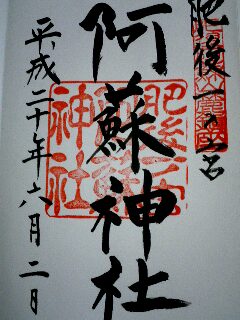 肥後一の宮
阿蘇神社
平成二十年六月二日
肥後一宮
阿蘇
神社